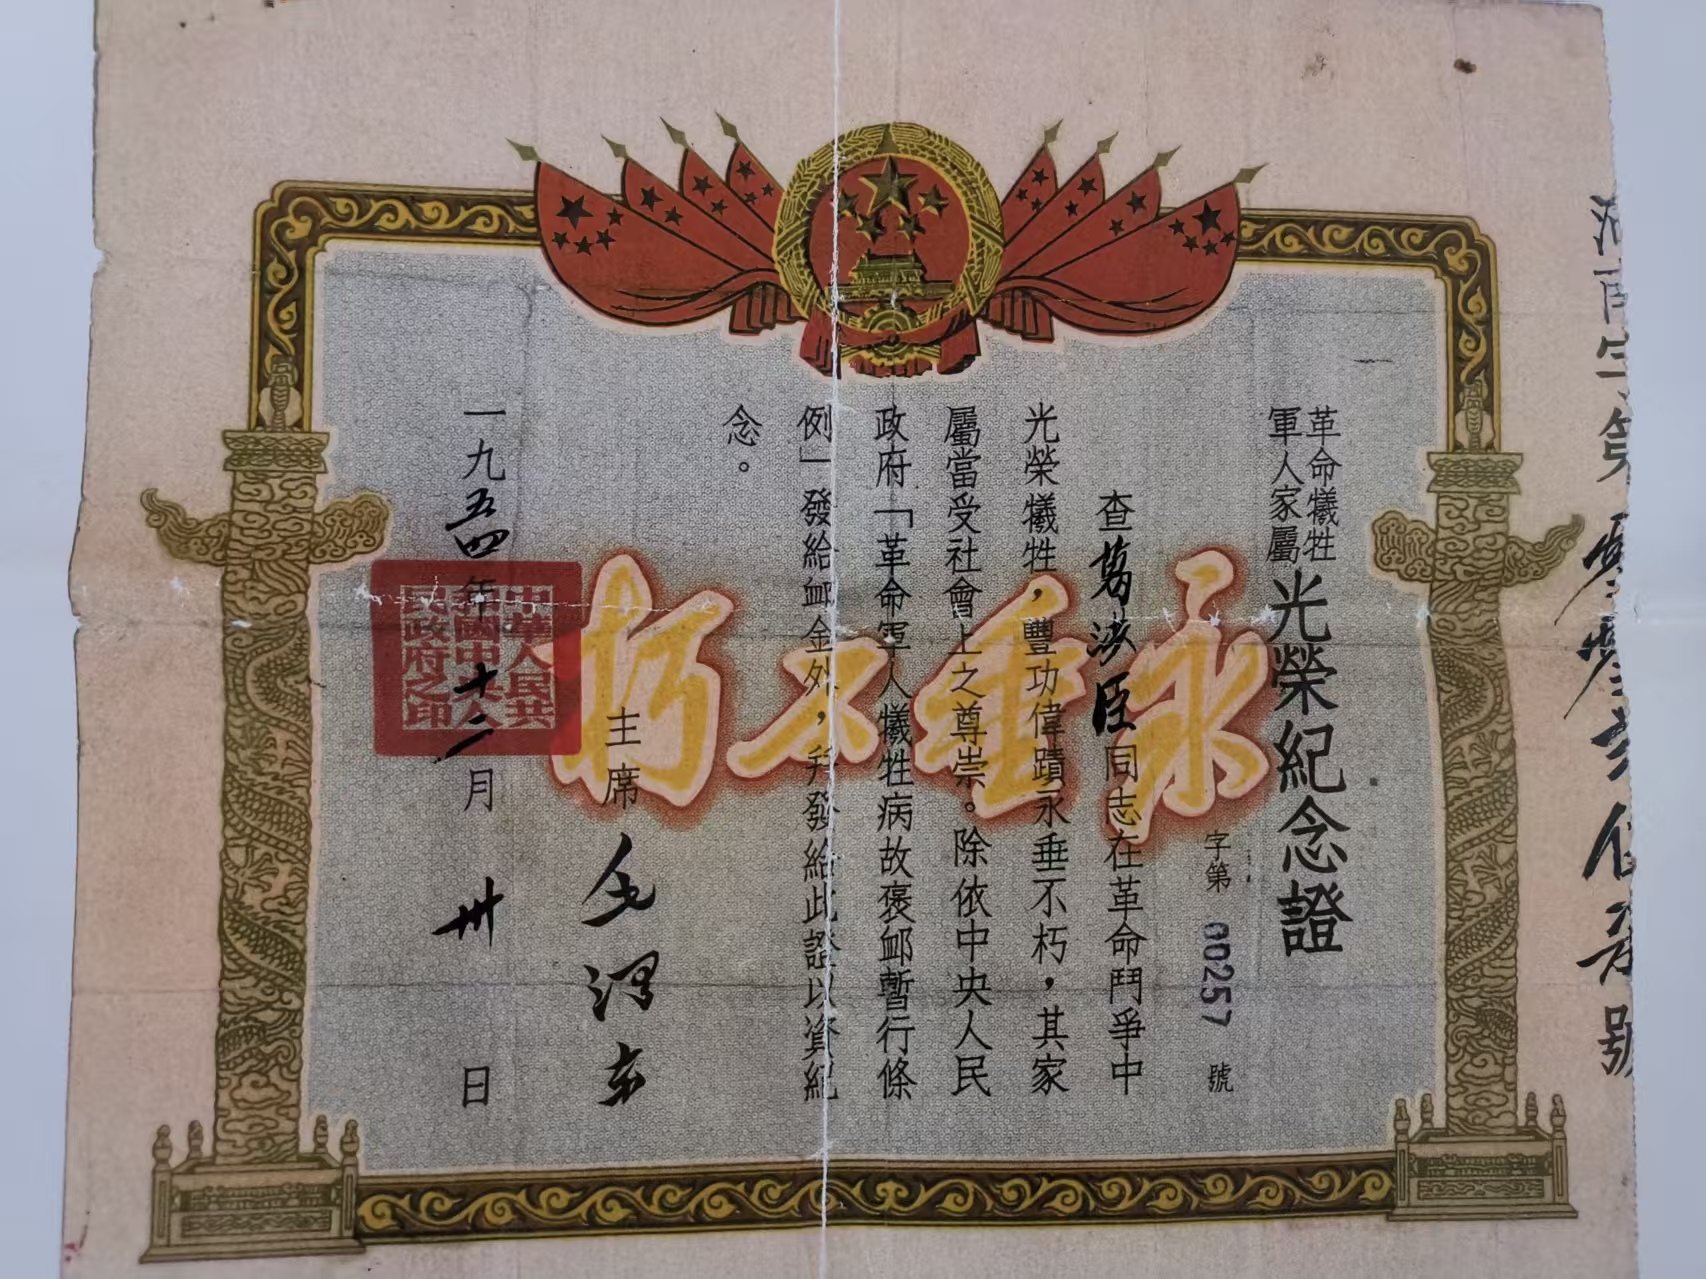 革命犧牲
軍人家屬
光榮紀念證
字第 00257 號
查葛洪臣同志在革命鬥爭中
光榮犧牲，豐功偉蹟永垂不朽，其家
屬當受社會上之尊崇。除依中央人民
政府「革命軍人犧牲病故褒卹暫行條
例」發給卹金外，幷發給此證以資紀
念。
主席 毛澤東
一九五四年十二月卅日
永垂不朽
中華人民共
和國中央人
民政府之印